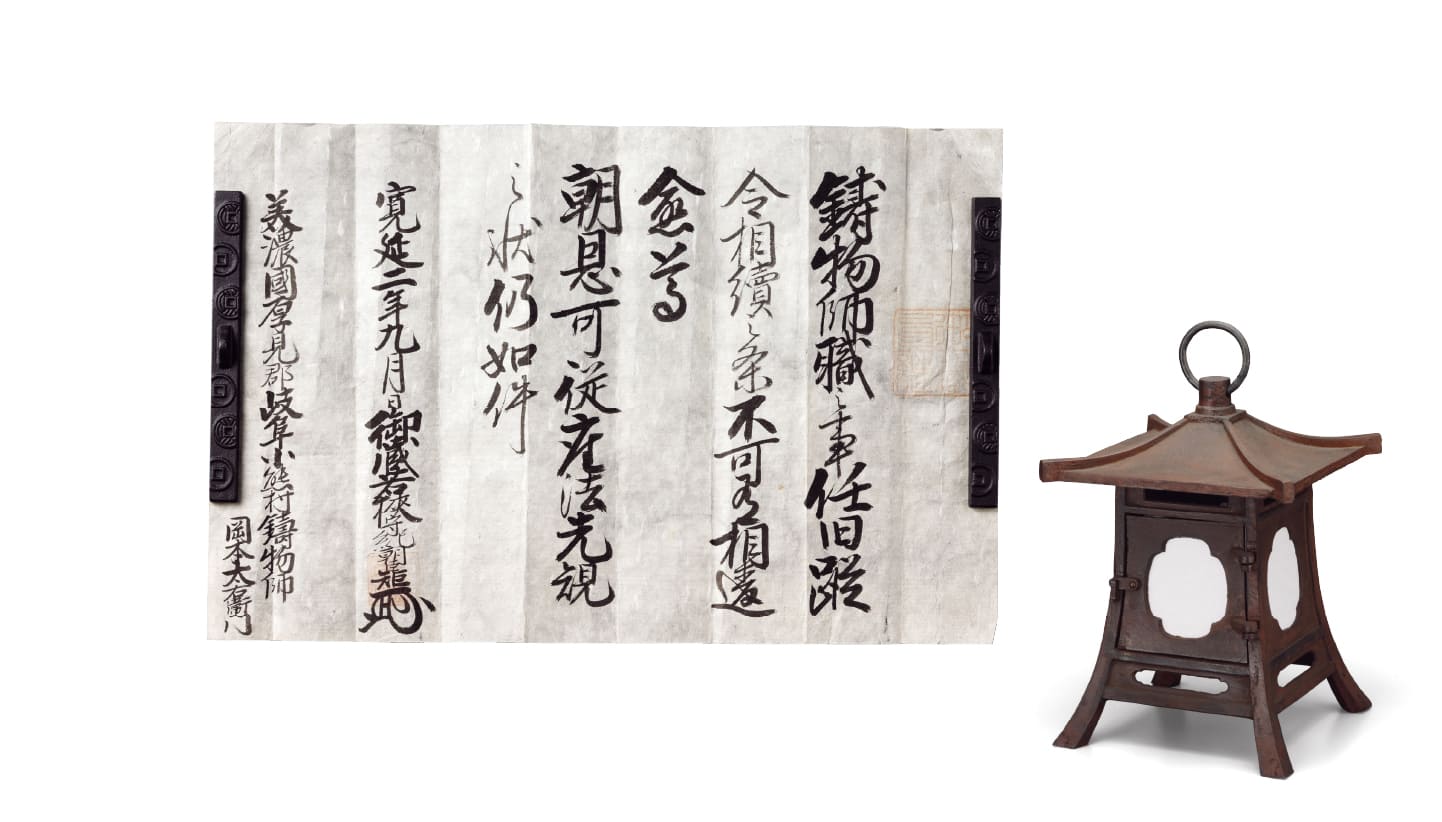 鋳物師職之事任旧蹤
令相續之条不可有相違
愈尊
朝恩可従座法先規
之状仍如件
寛延二年九月日御蔵
美濃國厚見郡岐阜小熊村鋳物師
岡本太右衛門